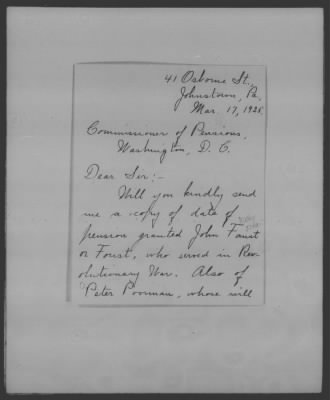 41 Osborne St.,
Johnstown, Pa.
Mar. 17, 1925
Commissioner of Pensions,
Washington, D. C.
Dear Sir:-
Will you kindly send
me a copy of date of
pension granted John Faust
or Foust, who served in Rev-
olutionary War. Also of
Peter Poorman, whose will